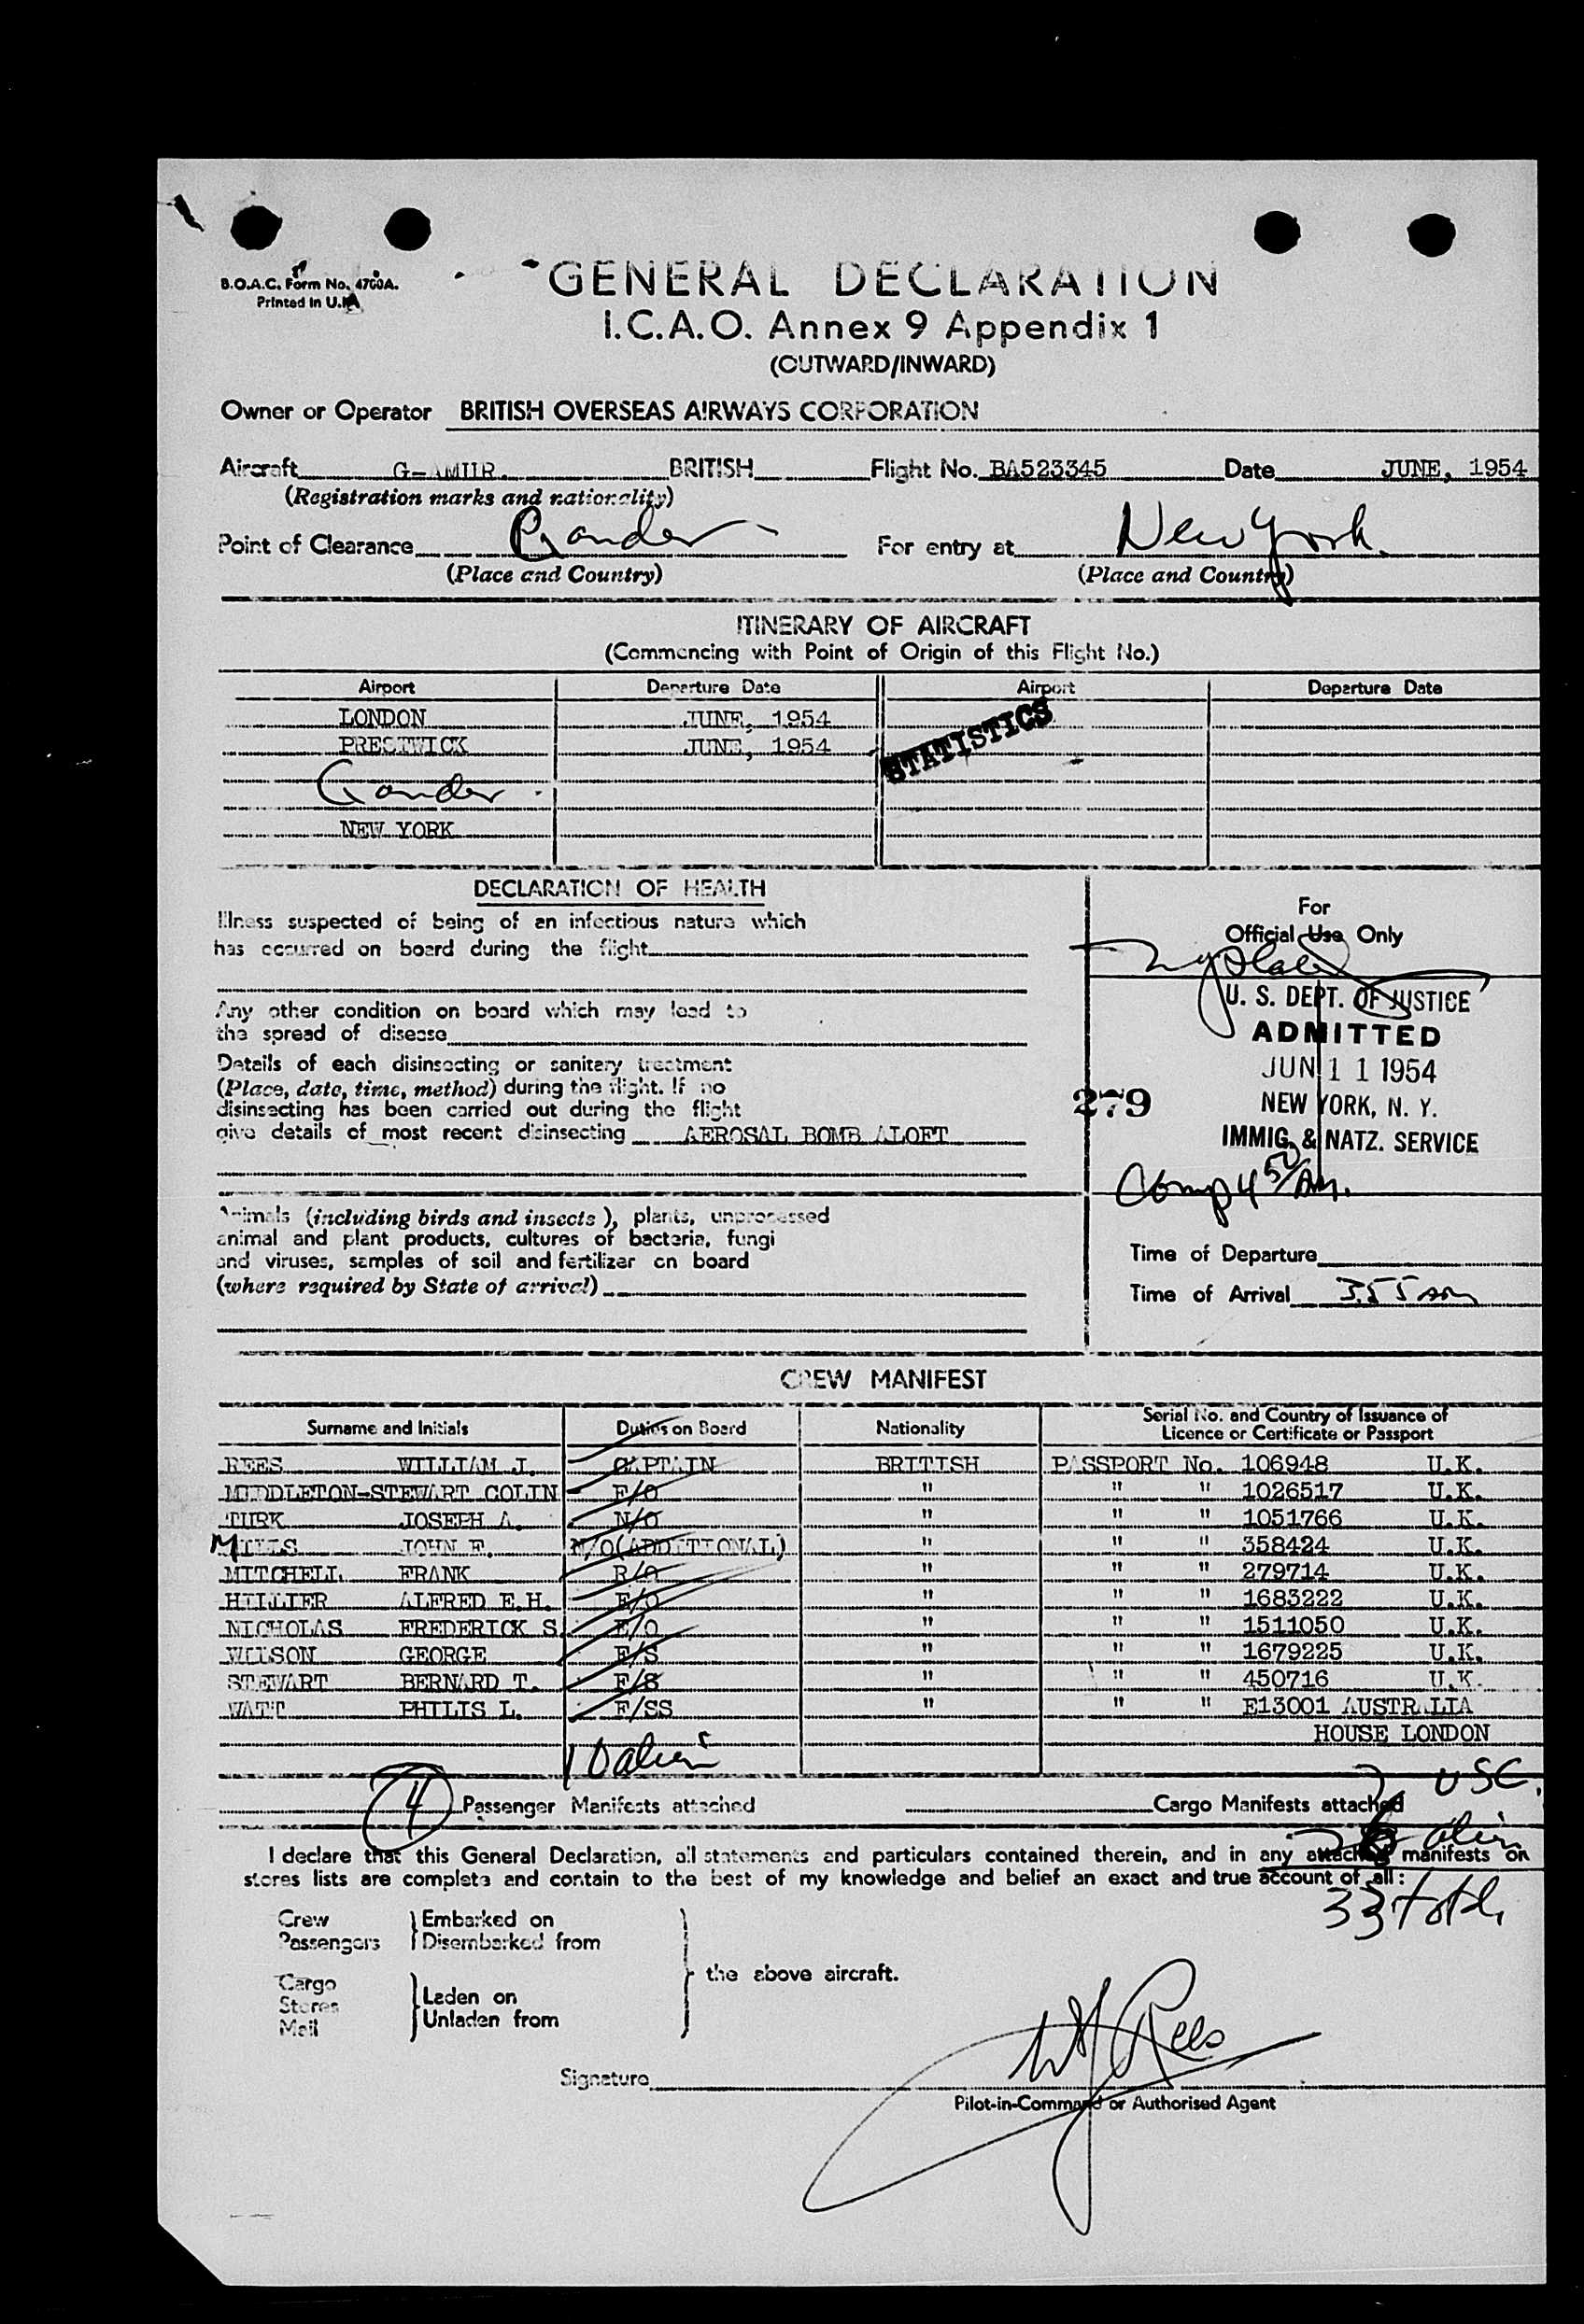 B.O.A.C. Form No. 4700A.
Printed in U.K.
GENERAL DECLARATION
I.C.A.O. Annex 9 Appendix 1
(OUTWARD/INWARD)
Owner or Operator BRITISH OVERSEAS AIRWAYS CORPORATION
Aircraft BRITISH Flight No. BA523345 Date JUNE, 1954
(Registration marks and nationality)
Point of Clearance Gander For entry at New York.
(Place and Country) (Place and Country)
ITINERARY OF AIRCRAFT
(Commencing with Point of Origin of this Flight No.)
Airport Departure Date Airport Departure Date
LONDON JUNE, 1954
PRESTWICK JUNE, 1954
STATISTICS
Gander
NEW YORK
DECLARATION OF HEALTH
Illness suspected of being of an infectious nature which
has occurred on board during the flight
Any other condition on board which may lead to
the spread of disease
Details of each disinsecting or sanitary treatment
(Place, date, time, method) during the flight. If no
disinsecting has been carried out during the flight
give details of most recent disinsecting AEROSAL BOMB ALOFT
Animals (including birds and insects), plants, unprocessed
animal and plant products, cultures of bacteria, fungi
and viruses, samples of soil and fertilizer on board
(where required by State of arrival)
For
Official Use Only
U. S. DEPT. OF JUSTICE
ADMITTED
JUN 1 1 1954
279
NEW YORK, N. Y.
IMMIG. & NATZ. SERVICE
Comp 4 50/AM.
Time of Departure
Time of Arrival 3.55 am
CREW MANIFEST
Surname and Initials Duties on Board Nationality Serial No. and Country of Issuance of
Licence or Certificate or Passport
REES WILLIAM J. CAPTAIN BRITISH PASSPORT No. 106948 U.K.
MIDDLETON-STEWART COLIN F/O " " " 1026517 U.K.
TURK JOSEPH A. N/O " " " 1051766 U.K.
MILLS JOHN F. N/O(ADDITIONAL) " " " 358424 U.K.
MITCHELL FRANK R/O " " " 279714 U.K.
HILLIER ALFRED E.H. E/O " " " 1683222 U.K.
NICHOLAS FREDERICK S. E/O " " " 1511050 U.K.
WILSON GEORGE F/S " " " 1679225 U.K.
STEWART BERNARD T. F/S " " " 450716 U.K.
WATT PHILIS L. F/SS " " " E13001 AUSTRALIA
HOUSE LONDON
10 aliens
4 Passenger Manifests attached Cargo Manifests attached
7 USC.
26 alien
I declare that this General Declaration, all statements and particulars contained therein, and in any attached manifests on
stores lists are complete and contain to the best of my knowledge and belief an exact and true account of all:
33 total
Crew Embarked on
Passengers Disembarked from
the above aircraft.
Cargo
Stores Laden on
Mail Unladen from
WJ Rees
Signature
Pilot-in-Command or Authorised Agent